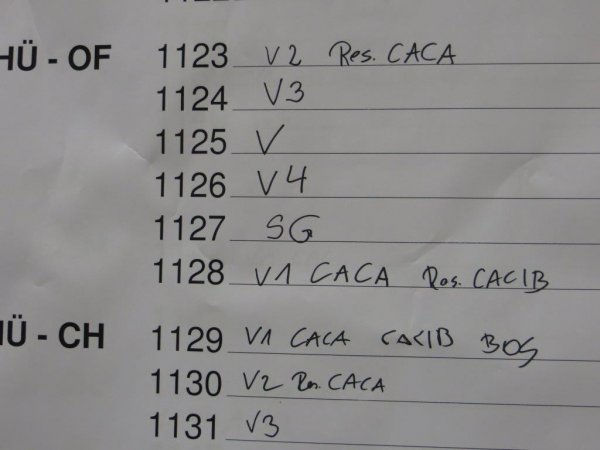 HÜ - OF 1123 V2 Res. CACA
1124 V3
1125 V
1126 V4
1127 SG
1128 V1 CACA Res. CACIB
HÜ - CH 1129 V1 CACA CACIB BOS
1130 V2 Res. CACA
1131 V3